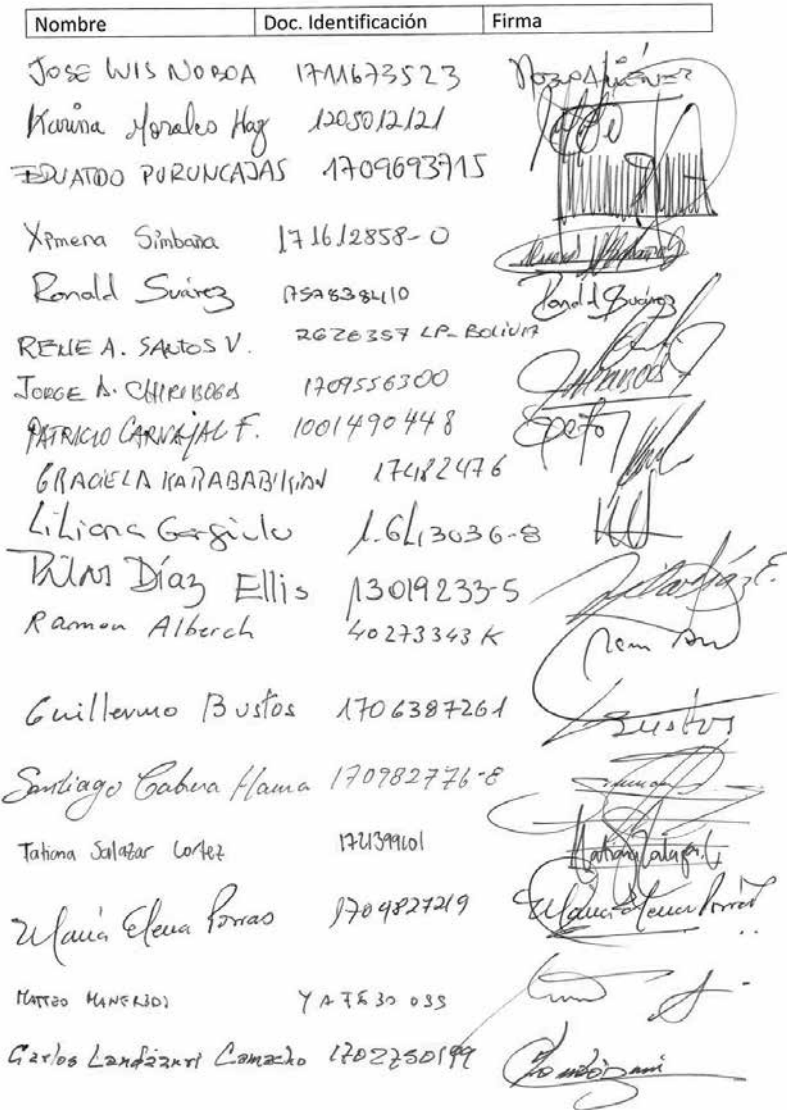 Nombre Doc. Identificación Firma
JOSE LUIS NOBOA 1711673523
Karina Morales Haz 1205012121
EDUARDO PURUNCAJAS 1709693715
Ximena Simbaña 171612858-0
Ronald Suárez 1757838410 Ronald Suárez
RENE A. SANTOS V. 2628357 LP-BOLIVIA
JORGE A. CHIRIBOGA 1709556300
PATRICIO CARVAJAL F. 1001490448
GRACIELA KARABABIKIAN 17482476
Liliana Gargiulo 1.613036-8
Pilar Díaz Ellis 13019233-5 Pilar Díaz E.
Ramon Alberch 40273343 K
Guillermo Bustos 1706387261 Bustos
Santiago Cabrera Hanna 170982776-8
Tatiana Salazar Cortez Tatiana Salazar C
María Elena Porras 1704827219 María Elena Porras
MATTEO MANFREDI YA7630033
Carlos Landázuri Camacho 1702750199